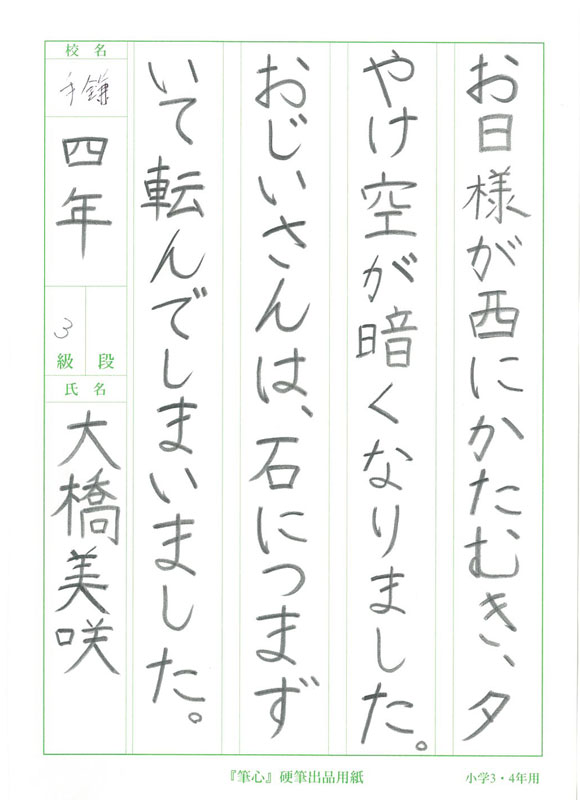 お日様が西にかたむき、夕
やけ空が暗くなりました。
おじいさんは、石につまず
いて転んでしまいました。
校名
手鎌
四年
3
級 段
氏名
大橋美咲
『筆心』硬筆出品用紙
小学3・4年用